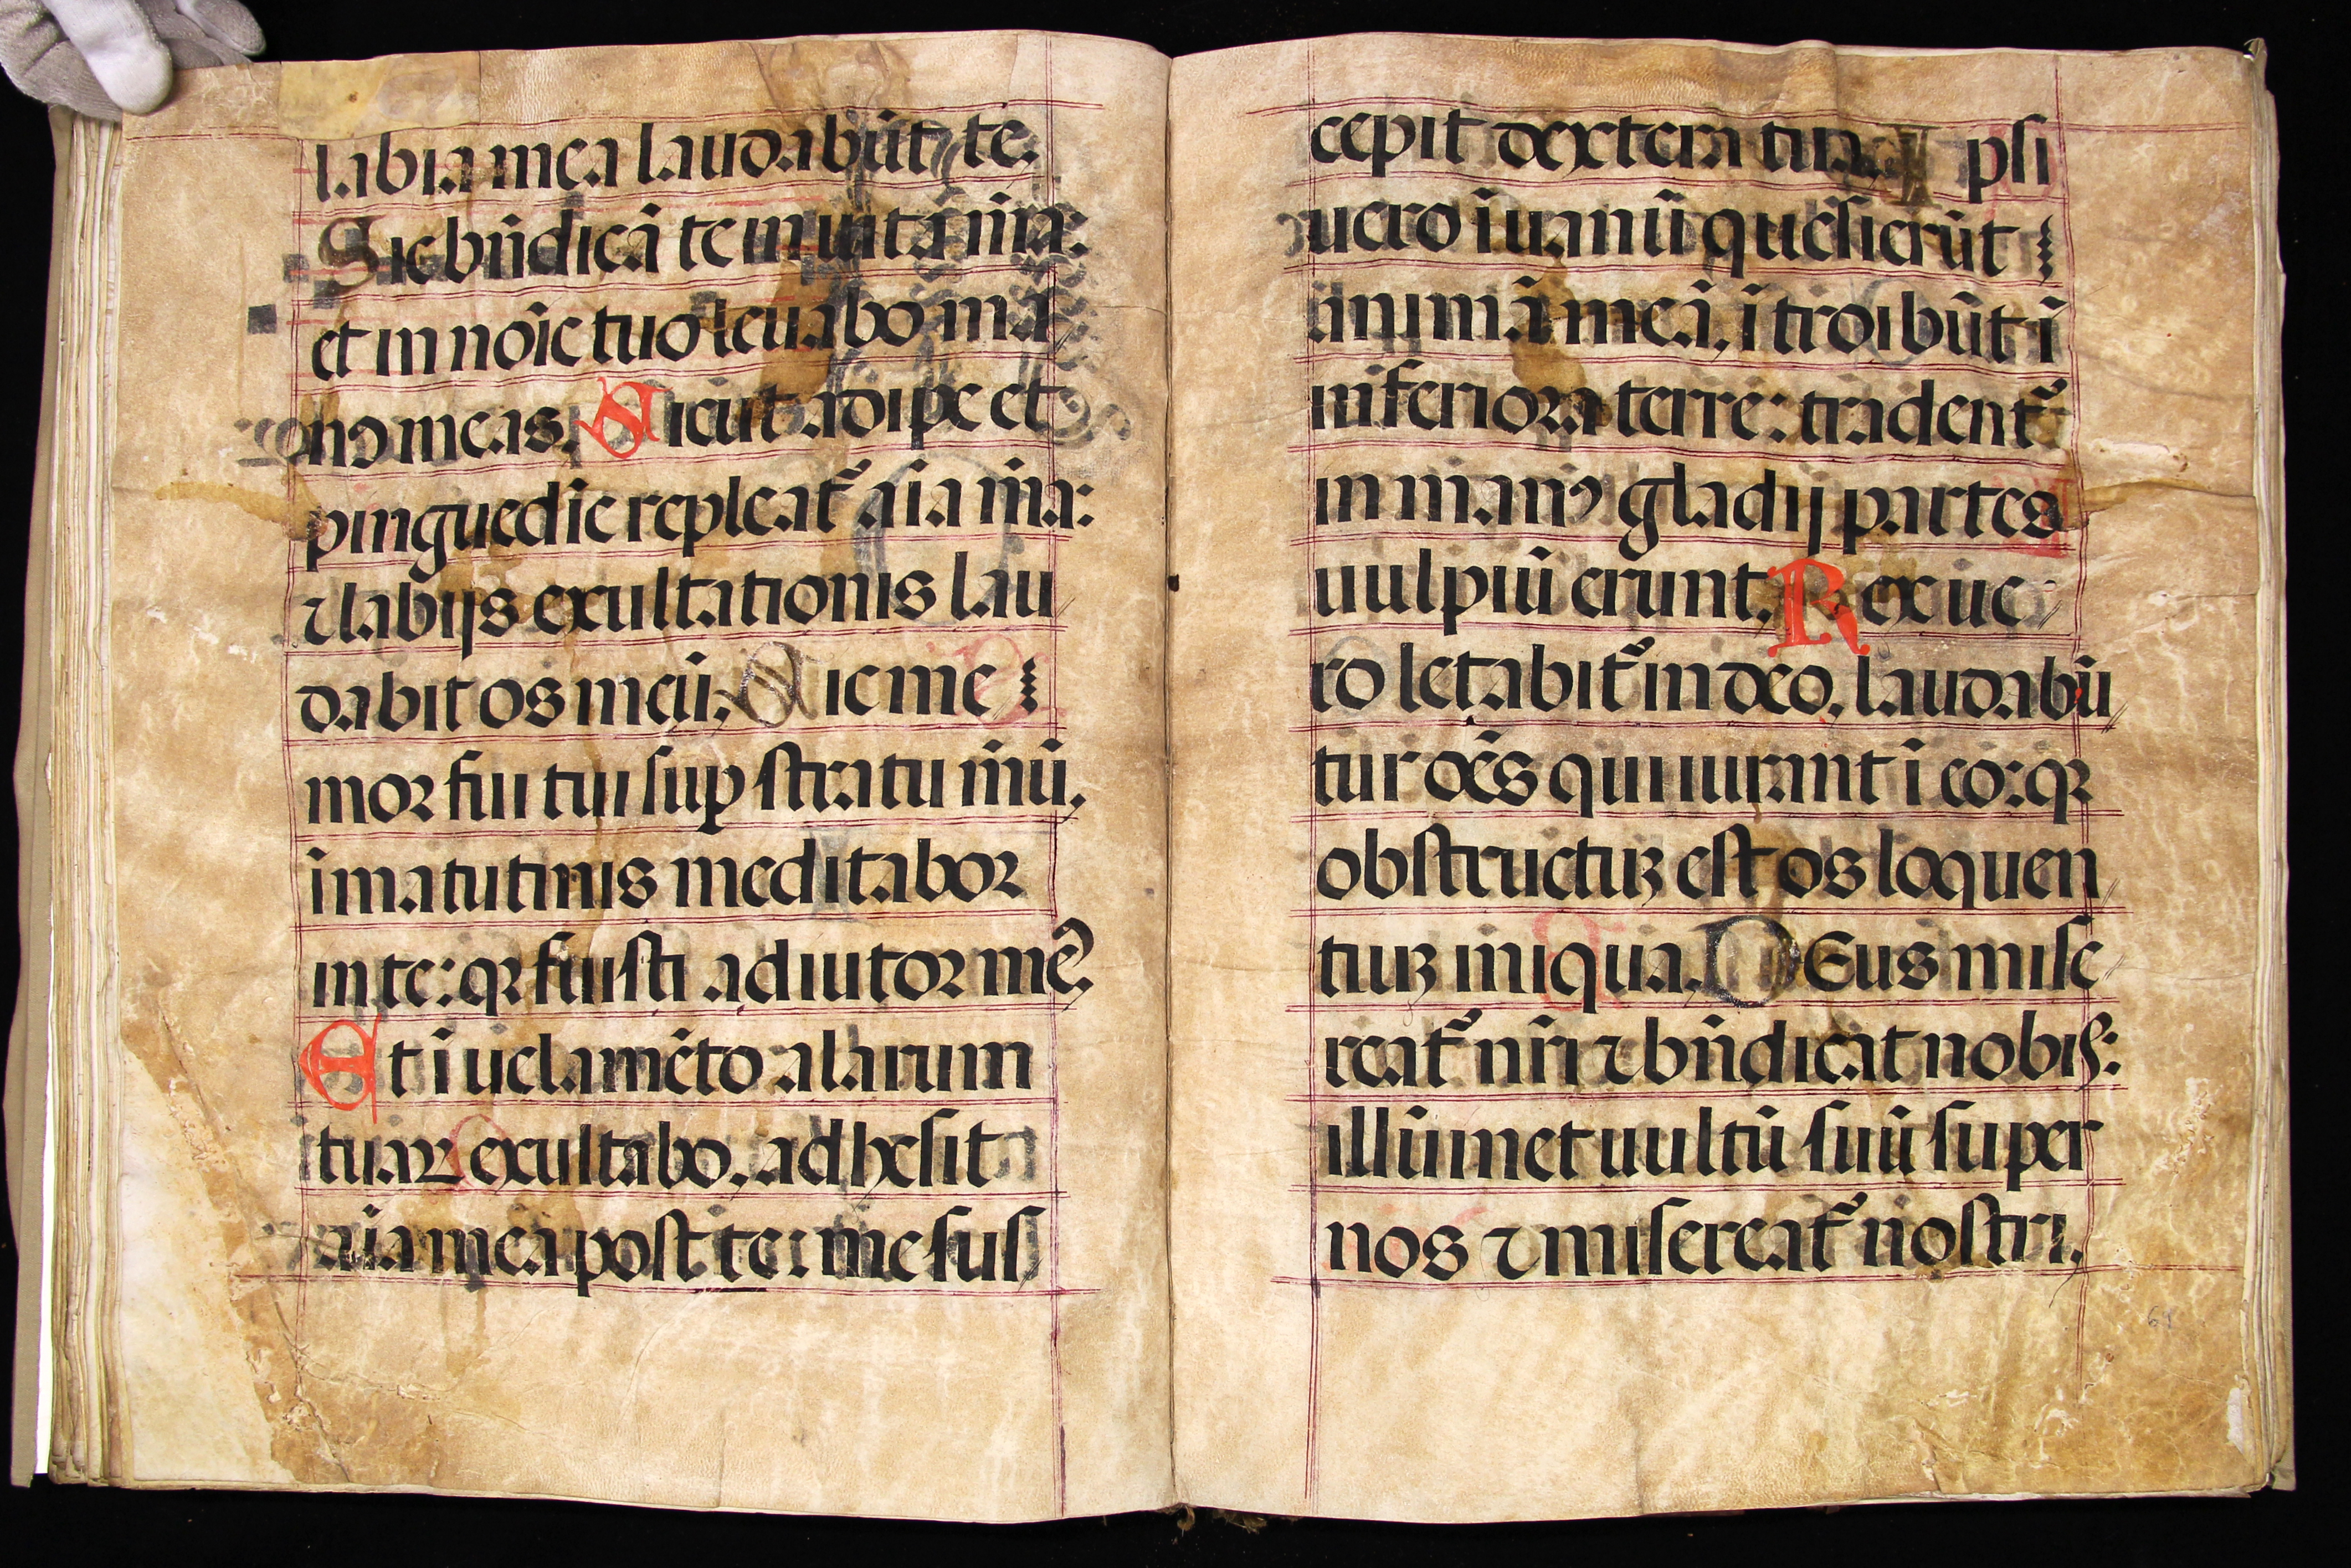 labia mea laudabūt te.
Sic bn̄dicā te in uita m̄a:
et in noīe tuo leuabo ma
nꝰ meas. Sicut adipe et
pinguedīe repleat᷑ aīa m̄a:
⁊ labijs exultationis lau
dabit os meū. Sic me
moꝛ fui tui suꝑ stratu m̄ū,
ī matutinis meditaboꝛ
in te: qꝛ fuisti adiutoꝛ meꝰ.
Et ī uelamēto alarum
tuaꝝ exultabo. adhesit
aīa mea post te: me sus
cepit dextera tua. Ipsi
uero ī uanū quesierūt
animā meā, ītroibūt ī
inferioꝛa terre: tradent᷑
in manꝰ gladij partes
uulpiū erunt. Rex ue
ro letabit᷑ in deo, laudabū
tur oēs qui iurant ī eo: qꝛ
obstructuꝫ est os loquen
tiuꝫ iniqua. DEus mise
reat᷑ nr̄i ⁊ bn̄dicat nobis:
illūinet uultū suū super
nos ⁊ misereat᷑ nostri.
61